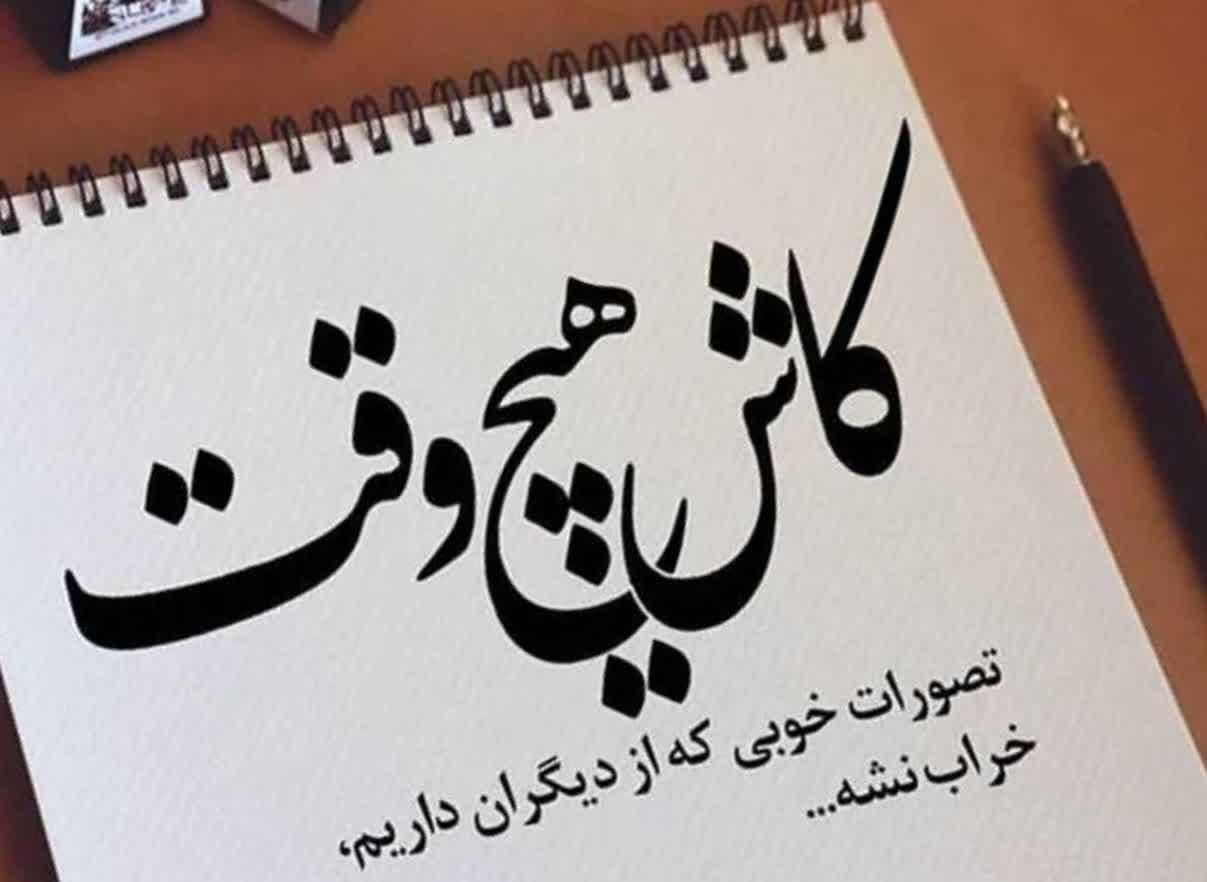 کاش هیچ وقت
تصورات خوبی که از دیگران داریم،
خراب نشه...